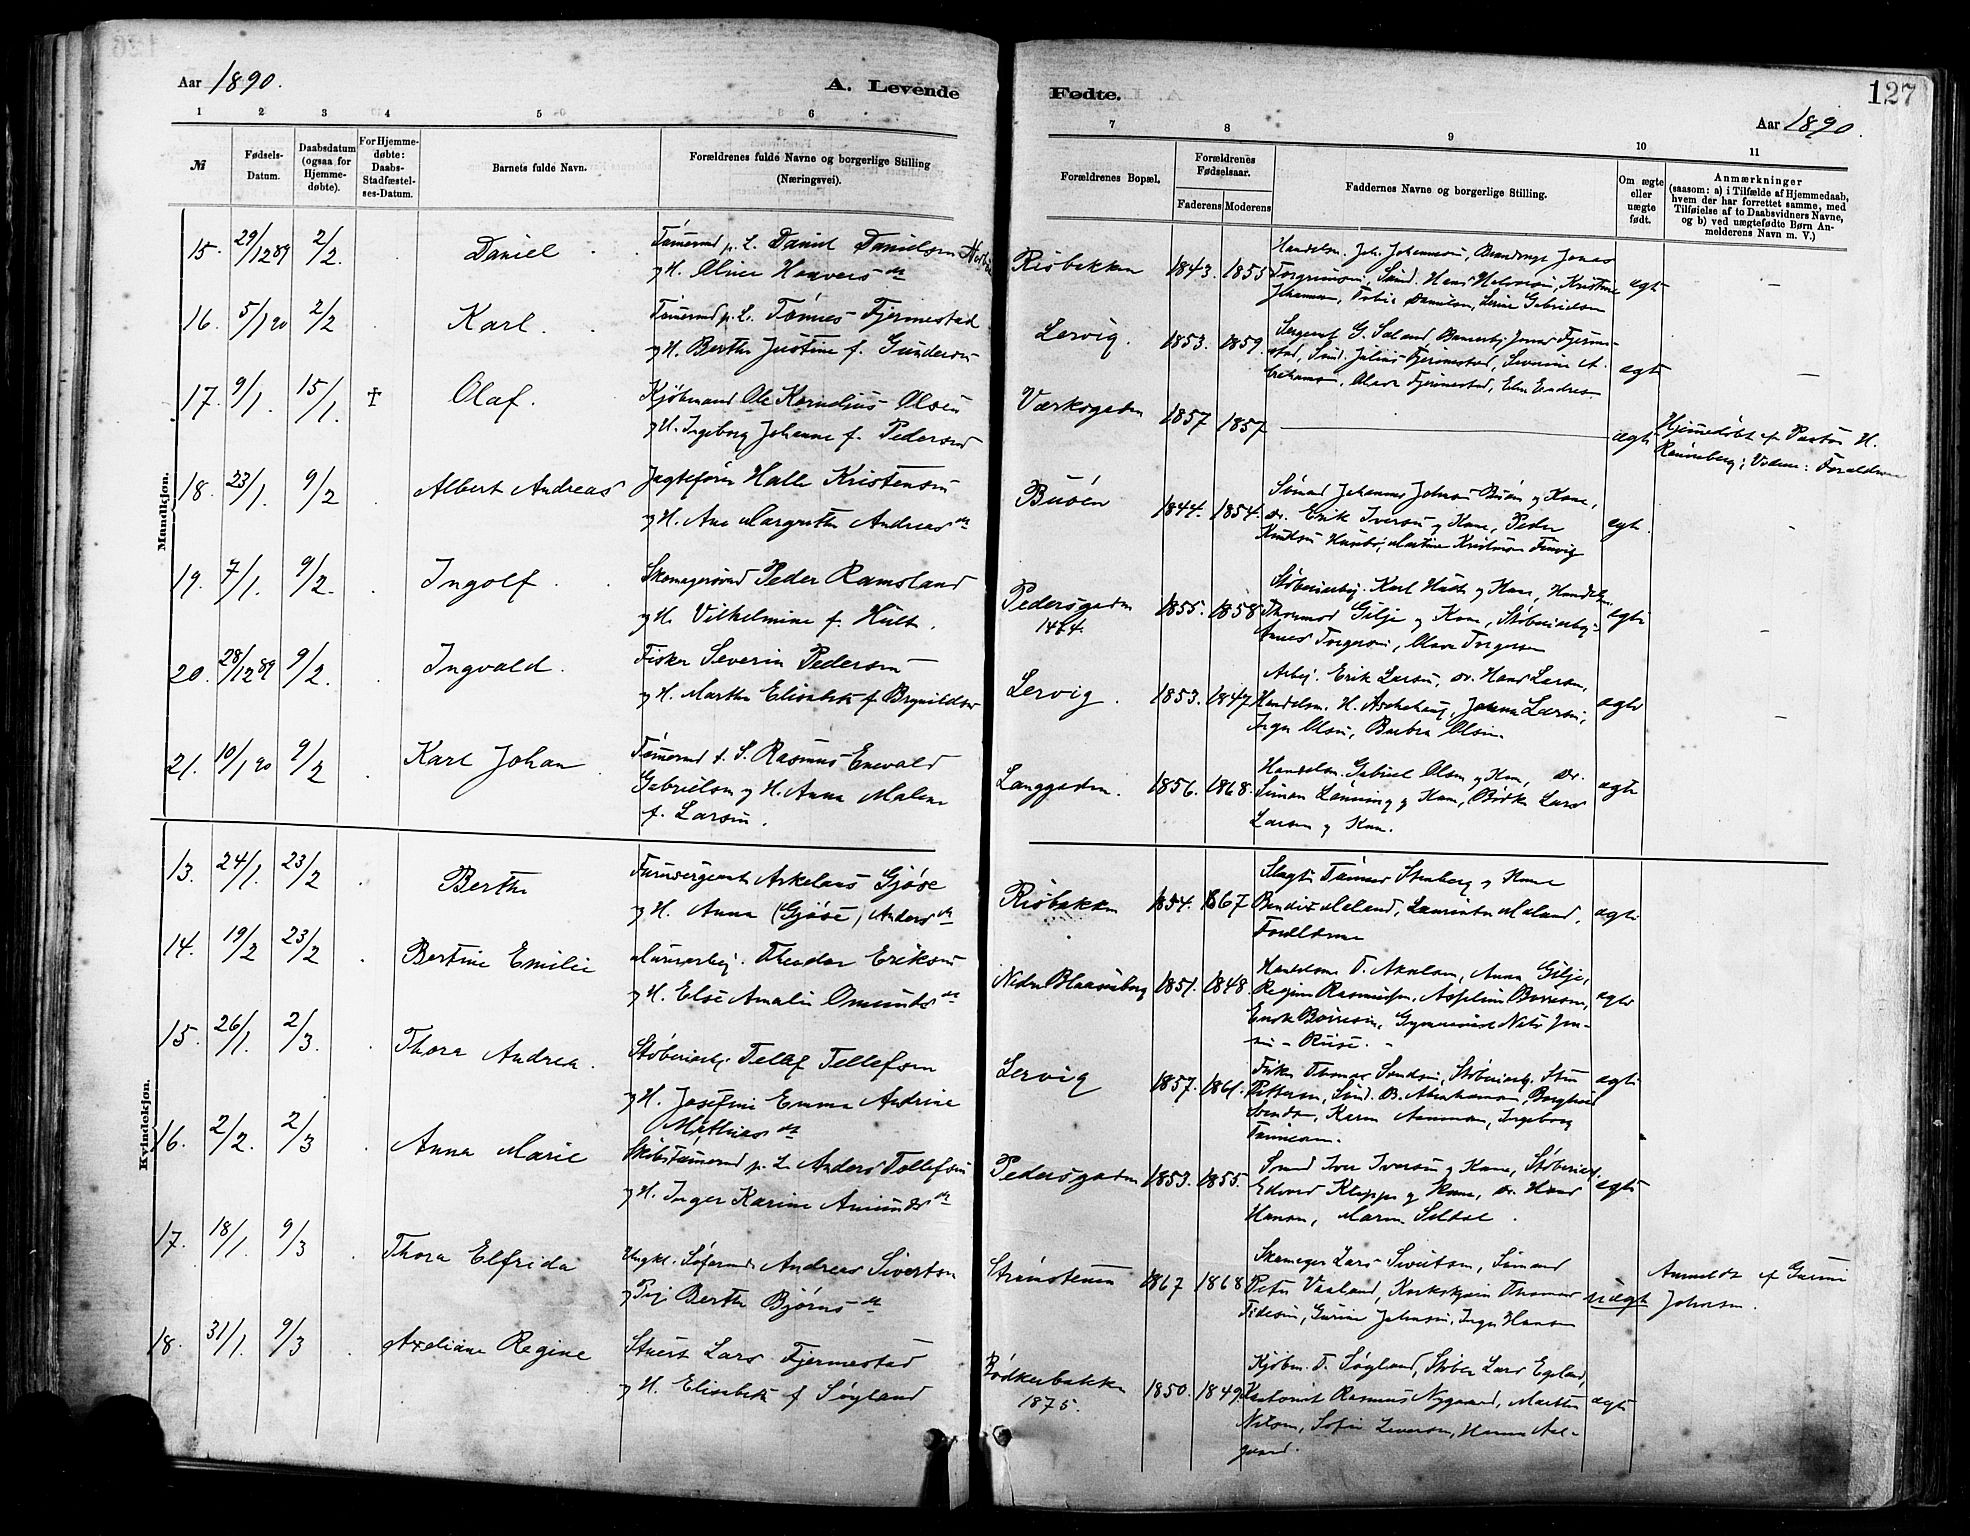 Aar 1890.
A. Levende
Fødte.
127
Aar 1890.
1 2 3 4 5 6
7 8 9 10 11
№
Fødsels-
Datum.
Daabsdatum
(ogsaa for
Hjemme-
døbte).
For Hjemme-
døbte:
Daabs-
Stadfæstel-
ses-Datum.
Barnets fulde Navn.
Forældrenes fulde Navne og borgerlige Stilling
(Næringsvei).
Forældrenes Bopæl.
Forældrenes
Fødselsaar.
Faderens Moderens
Faddernes Navne og borgerlige Stilling.
Om ægte
eller
uægte
født.
Anmærkninger
(saasom: a) i Tilfælde af Hjemmedaab,
hvem der har forrettet samme, med
Tilføielse af to Daabsvidners Navne,
og b) ved uægtefødte Børn An-
melderens Navn m. V.)
Mandkjøn.
15. 29/12 89 2/2. Daniel Tømmermd p. L. Daniel Danielsen
og H. Oline Hanvers dt
Risbakken 1843. 1855 Handelsm. Joh. Johannesen, Jonas
Torgrimsen, Hans Halvorsen, Kristine
Johannesen, Danielsen, Serine Gabrielsen
ægte –
16. 5/1 90 2/2 Karl. Tømmermd p. L. Tønnes Fjermestad
og H. Berthe Justine f. Gundersen
Lervig. 1853. 1859. Sergeant G. Søland, Jonas Fjerme-
stad, Julius Fjermestad, Severine A-
Fjermestad, Endresen
ægte –
17. 9/1. 15/1. † Olaf. Kjøbmand Ole Kornelius Olsen
og H. Ingeborg Johanne f. Pedersen
Værksgaden 1857 1857 ægte Hjemmedøbt af Pastor H.
Rønneberg; Vidner: Forældrene
18. 23/1. 9/2 Albert Andreas Jagtefører Halle Kristensen
og H. Ane Margrethe Andreas dt
Buøen 1844. 1854. Sømd Johannes Johnsen Buøen og Kone,
do. Erik Iversen og Kone, Peder
Knutsen Husebø, Martine Kristensen
ægte. –
19. 7/1. 9/2. Ingolf. Skomagersvd Peder Ramsland
og H. Vilhelmine f. Hult.
Pedersgaden
1474.
1855. 1858 Støberiarbej. Karl Hult og Kone, Handelsm.
Thormod Gilje og Kone, Støberiarbej.
Torgersen, Olava Torgersen
ægte –
20. 28/12 89 9/2. Ingvald. Fisker Severin Pedersen
og H. Marthe Elisabeth f. Brynildsen
Lervig. 1853. 1847 Arbej. Erik Larsen, do. Hans Larsen,
Handelsm. H. Aschehoug, Johanna Larsen,
Inger Olsen, Barbra Olsen.
ægte –
21. 10/1 90 9/2 Karl Johan Tømmermd t. S. Rasmus Enevald
Gabrielsen og H. Anna Malene
f. Larsen.
Langgaden. 1856. 1868. Handelsm. Gabriel Olsen og Kone, do.
Simon Lønning og Kone, Bødker Lars
Larsen og Kone.
ægte
Kvindekjøn.
13. 24/1. 23/2 Berthe Furersergeant Arkelaus Gjøse
og H. Anna (Gjøse) Anders dt
Risbakken 1854. 1867 Slagter Tønnes Stenberg og Kone
Bendix Maland, Laurentse Maland,
Forældrene
ægte
14. 19/2 23/2 Bertine Emilie Murerarbej. Theodor Eriksen
og H. Else Amalie Omunds dt
Nedre Blaasenborg 1851. 1848. Handelsm. T. Axelsen, Anna Gilje,
Regine Rasmussen, Børresen,
Børresen, Gymnasiast Nils Jen-
sen – Riise. –
ægte
15. 26/1. 2/3. Thora Andrea. Støberiarbj. Tellef Tellefsen
og H. Josefine Emma Andrine
Mathias dt
Lervig 1857. 1861. Fisker Thomas Sondresen, Støberiarbj. Sten
Pettersen, Sømd. B. Abrahamsen, Borghild
Karen Aanensen, Ingeborg
Tønnesen.
ægte
16. 2/2. 2/3 Anna Marie Skibstømmermd p. L. Anders Tollefsen
og H. Inger Karine Amunds dt
Pedersgaden 1853. 1855. Sømd Iver Iversen og Kone, Støberiarbj.
Edvard Kleppe og Kone, do. Hans
Hansen, Maren Seldal.
ægte
17. 18/1. 9/3 Thora Elfrida Ungkl. Søfarende Andreas Sivertsen
og Pige Berthe Bjørns dt
Strømstenen 1867 1868 Skomager Lars Sivertsen, Sømand
Peter Vaaland, Korkskjærer Thomas
Tidesen, Gurine Johnsen, Inger Hansen
uægte Anmeldt af Gurine
Johnsen.
18. 31/1. 9/3 Axeliane Regine Stuert Lars Fjermestad
og H. Elisabeth f. Søyland
Bødkerbakken
1875.
1850. 1849. Kjøbm. T. Søyland, Støber Lars Egeland,
Kontorist Rasmus Nygaard, Marthe
Nilsen, Sofie Iversen, Hanna Aal-
gaard.
ægte